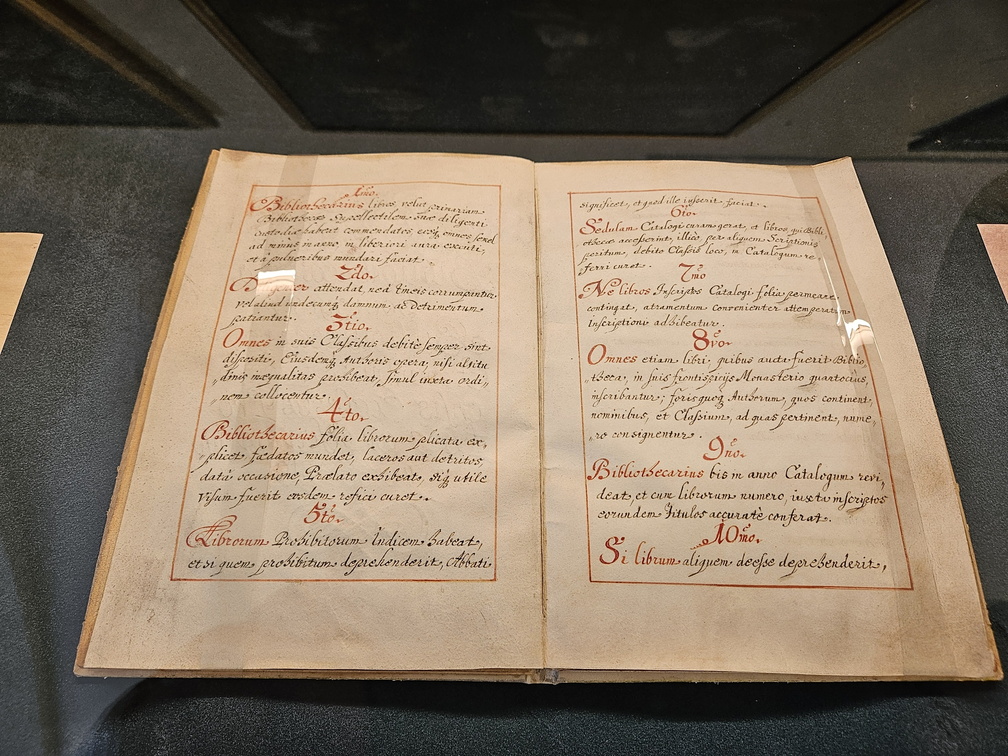 1mo.
Bibliothecarius libros, velut primariam
Bibliothecæ Supellectilem sub diligenti
custodia habeat commendatos, eosq, omnes semel
ad minus in anno, in liberiori aura excuti,
et à pulveribus mundari faciat.
2do.
attendat, ne à tineis corrumpantur,
vel aliud undecunq, damnum, ac Detrimentum
patiantur.
3tio.
Omnes in suis Classibus debitè semper sint
dispositi, Ejusdemq, Authoris opera, nisi altitu
„dinis inæqualitas prohibeat, simul iuxta ordi„
nem collocentur.
4to.
Bibliothecarius folia librorum plicata ex„
„plicet, fœdatos mundet, laceros aut detritos,
datâ occasione, Prælato exhibeat, siq, utile
visum fuerit eosdem refici curet.
5to.
Librorum Prohibitorum Indicem habeat,
et si quem prohibitum deprehenderit, Abbati
significet, et quod ille iusserit faciat.
6to.
Sedulam Catalogi curam gerat, et libros, qui Bibli„
othecæ accesserint, illicò per aliquem Scriptionis
peritum, debito Classis loco, in Catalogum re„
ferri curet.
7mo
Ne libros Inscriptos Catalogi folia permeare
contingat, atramentum convenienter attemperatum
Inscriptioni adhibeatur.
8vo.
Omnes etiam libri, quibus aucta fuerit Biblio„
„theca, in suis frontispicijs Monasterio quantocius,
inscribantur; forisquoq, Authorum, quos continent,
nominibus, et Classium, ad quas pertinent, nume„
„ro consignentur.
9no.
Bibliothecarius bis in anno Catalogum revi„
deat, et cum librorum numero, iuxta inscriptos
eorundem Titulos accuratè conferat.
10mo.
Si librum aliquem deesse deprehenderit,